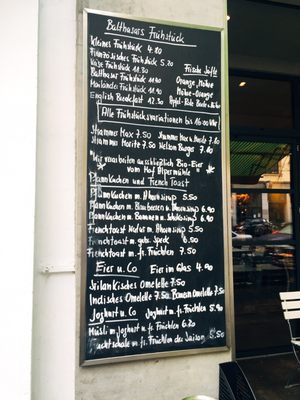 Balthasars Frühstück
Kleines Frühstück 4.80
Französisches Frühstück 5.20
Käse Frühstück 11.30
Balthasar Frühstück 11.90
Mailänder Frühstück 11.90
English Breakfast 12.30
Frische Säfte
Orange, Möhre
Möhre-Orange
Apfel-Rote Beete-Möhre
Alle Frühstücksvariationen bis 16:00 Uhr
Stramer Max 7.50
Strammer Moritz 7.50 Nelson Burger 7.90
"Wir verarbeiten ausschließlich Bio-Eier
vom Hof
Pfannkuchen und French Toast
Pfannkuchen m. Ahornsirup 5.50
Pfannkuchen m. Blaubeeren u. Ahornsirup 6.90
Pfannkuchen m. Bananen u. Schokosirup 6.90
Frenchtoast Natur m. Ahornsirup 5.50
Frenchtoast m. geb. Speck 6.50
Frenchtoast m. fr. Früchten 7.50
Eier u. Co Eier im Glas 4.00
Srilankisches Omelette 7.50
Indisches Omelette 7.50 Omelette 7.50
Joghurt u. Co Joghurt m. fr. Früchten 5.90
Müsli m. Joghurt u. fr. Früchten 6.20
Fruchtschale m. fr. Früchten der Saison 5.50